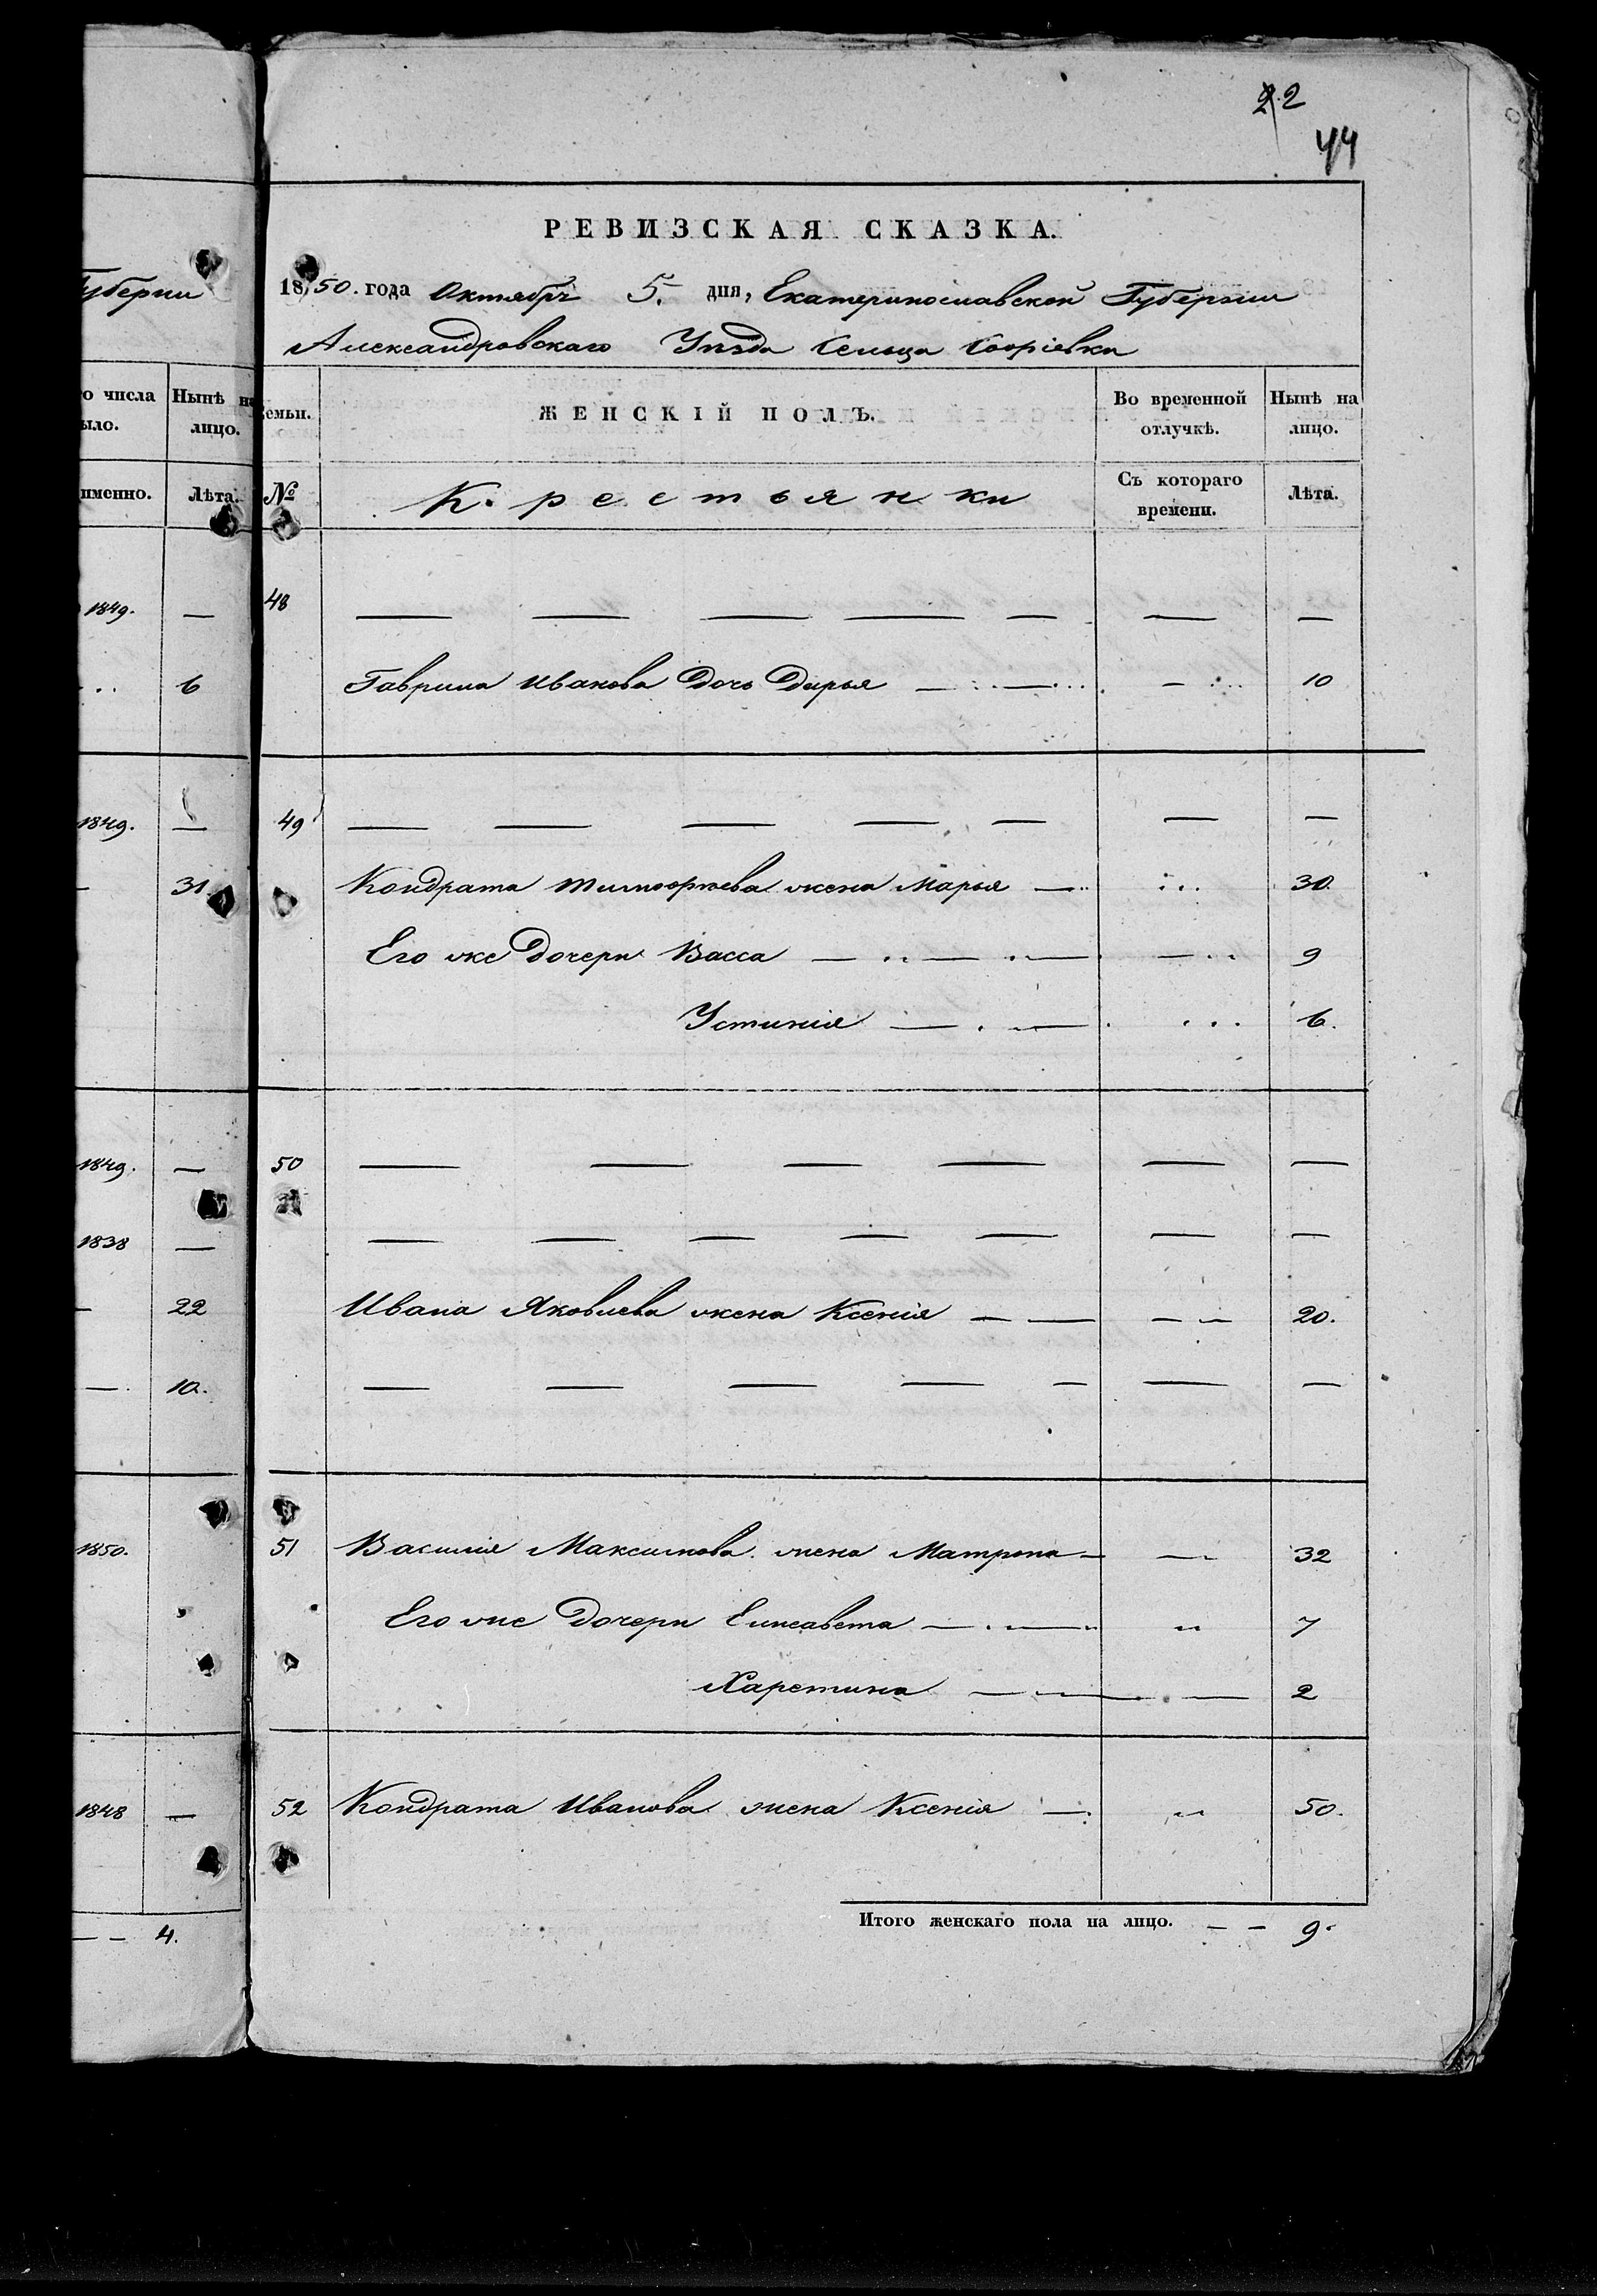 22
44
РЕВИЗСКАЯ СКАЗКА.
1850. года Октября 5. дня, Екатеринославской Губернии
Александровскаго Уѣзда Сельца Софіевки
Семьи. ЖЕНСКІЙ ПОЛЪ. Во временной отлучкѣ. Нынѣ на лицо.
№ Крестьянки Съ котораго времени. Лѣта.
48 — — — — — — —
Гаврила Иванова Дочь Дарья — — — 10
49 — — — — — — —
Кондрата Тимофѣева жена Марья — 30.
Его же Дочери Васса — — — — 9
Устинія — — 6.
50 — — — — — —
— — — — — — —
Ивана Яковлева жена Ксенія — — — — 20.
— — — — — — —
51 Василія Максимова жена Матрона — — 32
Его же Дочери Елисавета — — 7
Харетина — — — 2
52 Кондрата Иванова жена Ксенія — 50.
Итого женскаго пола на лицо. — — 9.
Губерніи
го числа
ыло.
Нынѣ на
лицо.
именно. Лѣта.
1849. —
6
1849. —
— 31
1849. —
1838 —
— 22
— 10.
1850.
1848 —
— — 4.